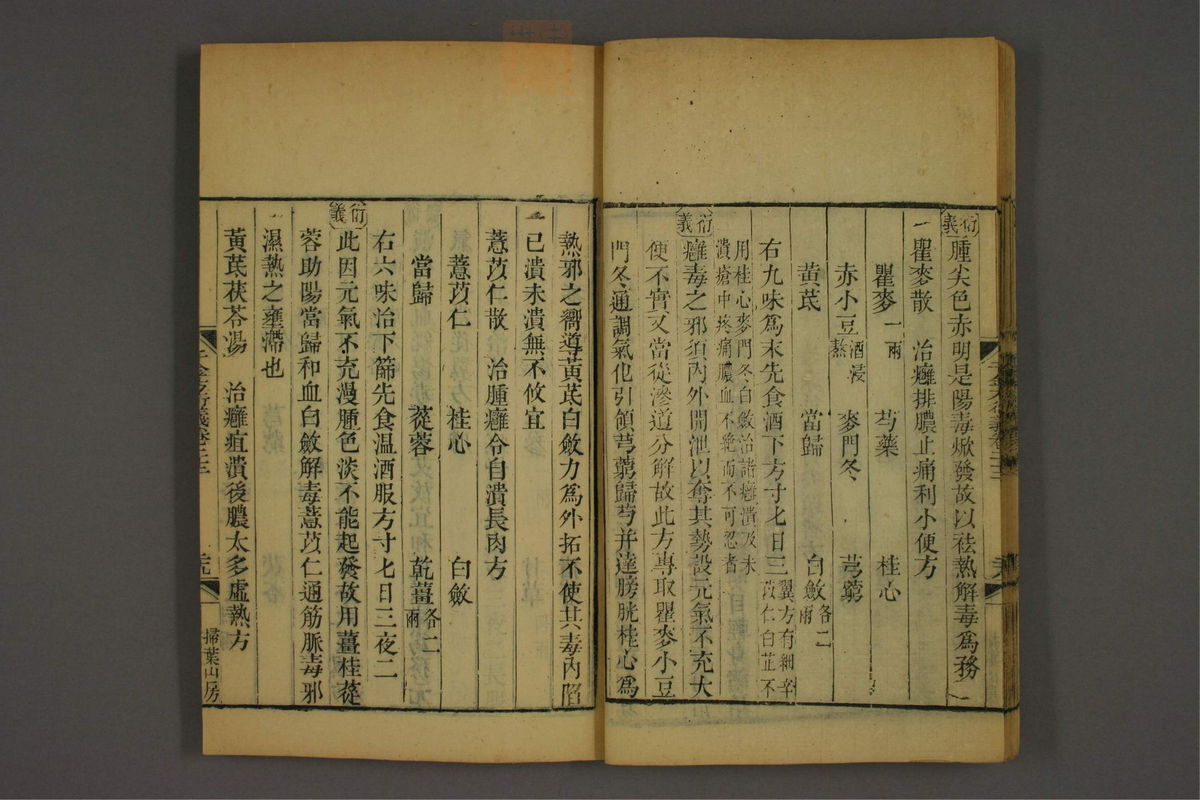 衍義 腫尖色赤明是陽毒焮發故以祛熱解毒爲務
一瞿麥散　治癰排膿止痛利小便方
瞿麥一兩　芍藥　桂心
赤小豆酒浸熬　麥門冬　芎藭
黃芪　當歸　白斂各二兩
右九味爲末先食酒下方寸匕日三翼方有細辛苡仁白芷不
用桂心麥門冬白斂治諸癰潰及未
潰瘡中疼痛膿血不絕而不可忍者
衍義 癰毒之邪須內外開泄以奪其勢設元氣不充大
使不實又當從滲道分解故此方專取瞿麥小豆
門冬通調氣化引領芎藭歸芍并達膀胱桂心爲
熱邪之嚮導黃芪白斂力爲外拓不使其毒內陷
已潰未潰無不攸宜
薏苡仁散　治腫癰令自潰長肉方
薏苡仁　桂心　白斂
當歸　蓯蓉　乾薑各二兩
右六味治下篩先食溫酒服方寸匕日三夜二
衍義 此因元氣不充漫腫色淡不能起發故用薑桂蓯
蓉助陽當歸和血白斂解毒薏苡仁通筋脈毒邪
濕熱之壅滯也
黃芪茯苓湯　治癰疽潰後膿太多虛熱方
掃葉山房